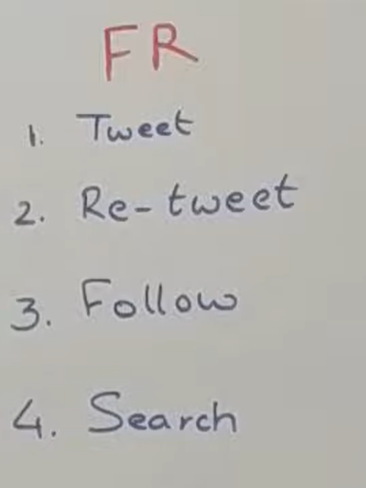 FR
1. Tweet
2. Re-tweet
3. Follow
4. Search